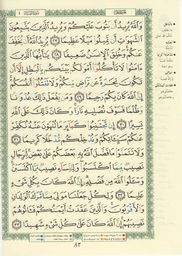 وَٱللَّهُ يُرِيدُ أَن يَتُوبَ عَلَيْكُمْ وَيُرِيدُ ٱلَّذِينَ يَتَّبِعُونَ
ٱلشَّهَوَٰتِ أَن تَمِيلُوا۟ مَيْلًا عَظِيمًا ٢٧ يُرِيدُ ٱللَّهُ أَن يُخَفِّفَ
عَنكُمْ وَخُلِقَ ٱلْإِنسَٰنُ ضَعِيفًا ٢٨ يَٰٓأَيُّهَا ٱلَّذِينَ
ءَامَنُوا۟ لَا تَأْكُلُوٓا۟ أَمْوَٰلَكُم بَيْنَكُم بِٱلْبَٰطِلِ إِلَّآ
أَن تَكُونَ تِجَٰرَةً عَن تَرَاضٍ مِّنكُمْ وَلَا تَقْتُلُوٓا۟ أَنفُسَكُمْ
إِنَّ ٱللَّهَ كَانَ بِكُمْ رَحِيمًا ٢٩ وَمَن يَفْعَلْ ذَٰلِكَ عُدْوَٰنًا
وَظُلْمًا فَسَوْفَ نُصْلِيهِ نَارًا وَكَانَ ذَٰلِكَ عَلَى ٱللَّهِ
يَسِيرًا ٣٠ إِن تَجْتَنِبُوا۟ كَبَآئِرَ مَا تُنْهَوْنَ عَنْهُ نُكَفِّرْ
عَنكُمْ سَيِّـَٔاتِكُمْ وَنُدْخِلْكُم مُّدْخَلًا كَرِيمًا ٣١
وَلَا تَتَمَنَّوْا۟ مَا فَضَّلَ ٱللَّهُ بِهِۦ بَعْضَكُمْ عَلَىٰ بَعْضٍ لِّلرِّجَالِ
نَصِيبٌ مِّمَّا ٱكْتَسَبُوا۟ وَلِلنِّسَآءِ نَصِيبٌ مِّمَّا ٱكْتَسَبْنَ
وَسْـَٔلُوا۟ ٱللَّهَ مِن فَضْلِهِۦٓ إِنَّ ٱللَّهَ كَانَ بِكُلِّ شَىْءٍ
عَلِيمًا ٣٢ وَلِكُلٍّ جَعَلْنَا مَوَٰلِىَ مِمَّا تَرَكَ ٱلْوَٰلِدَانِ
وَٱلْأَقْرَبُونَ وَٱلَّذِينَ عَقَدَتْ أَيْمَٰنُكُمْ فَـَٔاتُوهُمْ
نَصِيبَهُمْ إِنَّ ٱللَّهَ كَانَ عَلَىٰ كُلِّ شَىْءٍ شَهِيدًا ٣٣
٨٣